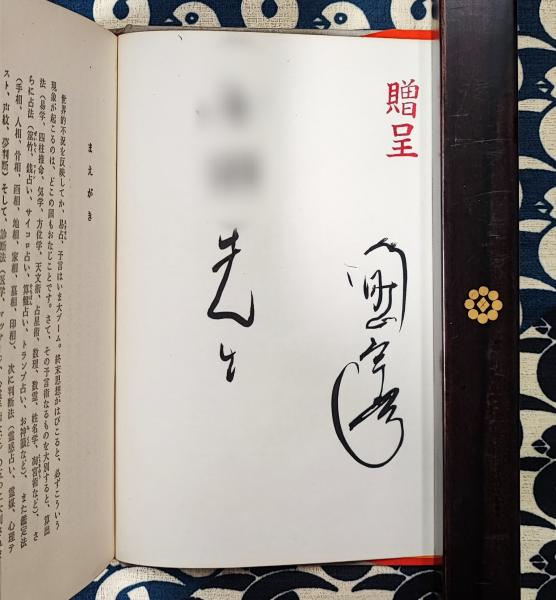 贈呈
先生
まえがき
世界的不況を反映してか、易占、予言はいま大ブーム。終末思想がはびこると、必ずこういう
現象が起こるのは、どこの国もおなじことです。さて、その予言術なるものを大別すると、算出
法（易学、四柱推命、気学、方位学、天文術、占星術、数理、数霊、姓名学、淘宮術など）、さ
らに占法（筮竹、銭占い、サイコロ占い、算盤占い、トランプ占い、お神籤など）、また鑑定法
（手相、人相、骨相、画相、地相、家相、墓相、印相）、次に判断法（霊感占い、霊媒、心理テ
スト、声紋、夢判断）そして、診断法（医学、